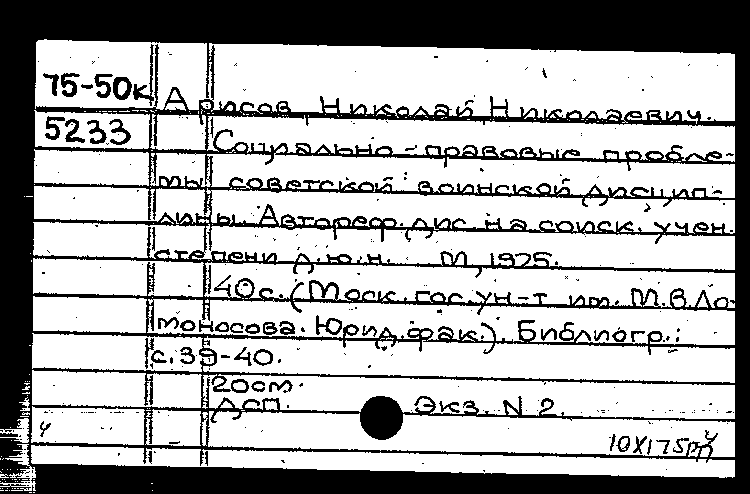 75-50к Арисов, Николай Николаевич.
5233 Социально-правовые пробле-
мы советской воинской дисцип-
лины. Автореф. дис. на соиск. учен.
степени д.ю.н. М, 1975.
40с. (Моск. гос. ун-т им. М.В.Ло-
моносова. Юрид. фак.). Библиогр.:
с. 39-40.
20см.
ДСП. Экз. N 2.
ч